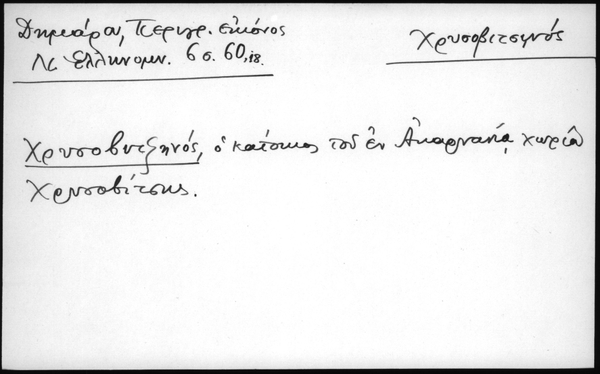 Δημαρᾶ, Περιγρ. εἰκόνος
Ν. Ἑλληνομν. 6 σ. 60,18.
Χρυσοβιτσινός
Χρυσοβιτζηνός, ὁ κάτοικος τοῦ ἐν Ἀκαρνανίᾳ χωρίου
Χρυσοβίτσης.